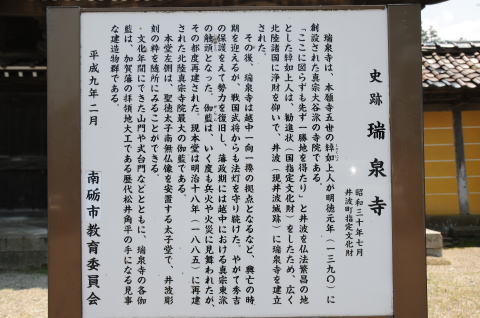 史跡 瑞泉寺
昭和三十年七月
井波町指定文化財
瑞泉寺は、本願寺五世の綽如上人が明徳元年(一三九〇)に
創設された真宗大谷派の寺院である。
「ここに図らずも先ず一勝地を得たり」と井波を仏法繁昌の地
とした綽如上人は、勧進状(国指定文化財)をしたため、広く
北陸諸国に浄財を仰いで、井波(現井波城跡)に瑞泉寺を建立
された。
その後、瑞泉寺は越中一向一揆の拠点となるなど、興亡の時
期を迎えるが、戦国武将からも法灯を守り続けた。やがて秀吉
の保護をえて勢力を復旧し、藩政期には越中における真宗東派
の触頭となった。御藍は、いく度も兵火や火災に見舞われたが、
その都度再建された。現本堂は明治十八年(一八八五)に再建
された北陸真宗寺院最大の伽藍である。
本堂左側は、聖徳太子南無仏像を安置する太子堂で、井波彫
刻の粋を随所にみることができる。
文化年間にできた山門や式台門などとともに、瑞泉寺の各伽
藍は、加賀藩の拝領地大工である歴代松井角平の手になる見事
な建造物群である。
平成九年二月
南砺市教育委員会